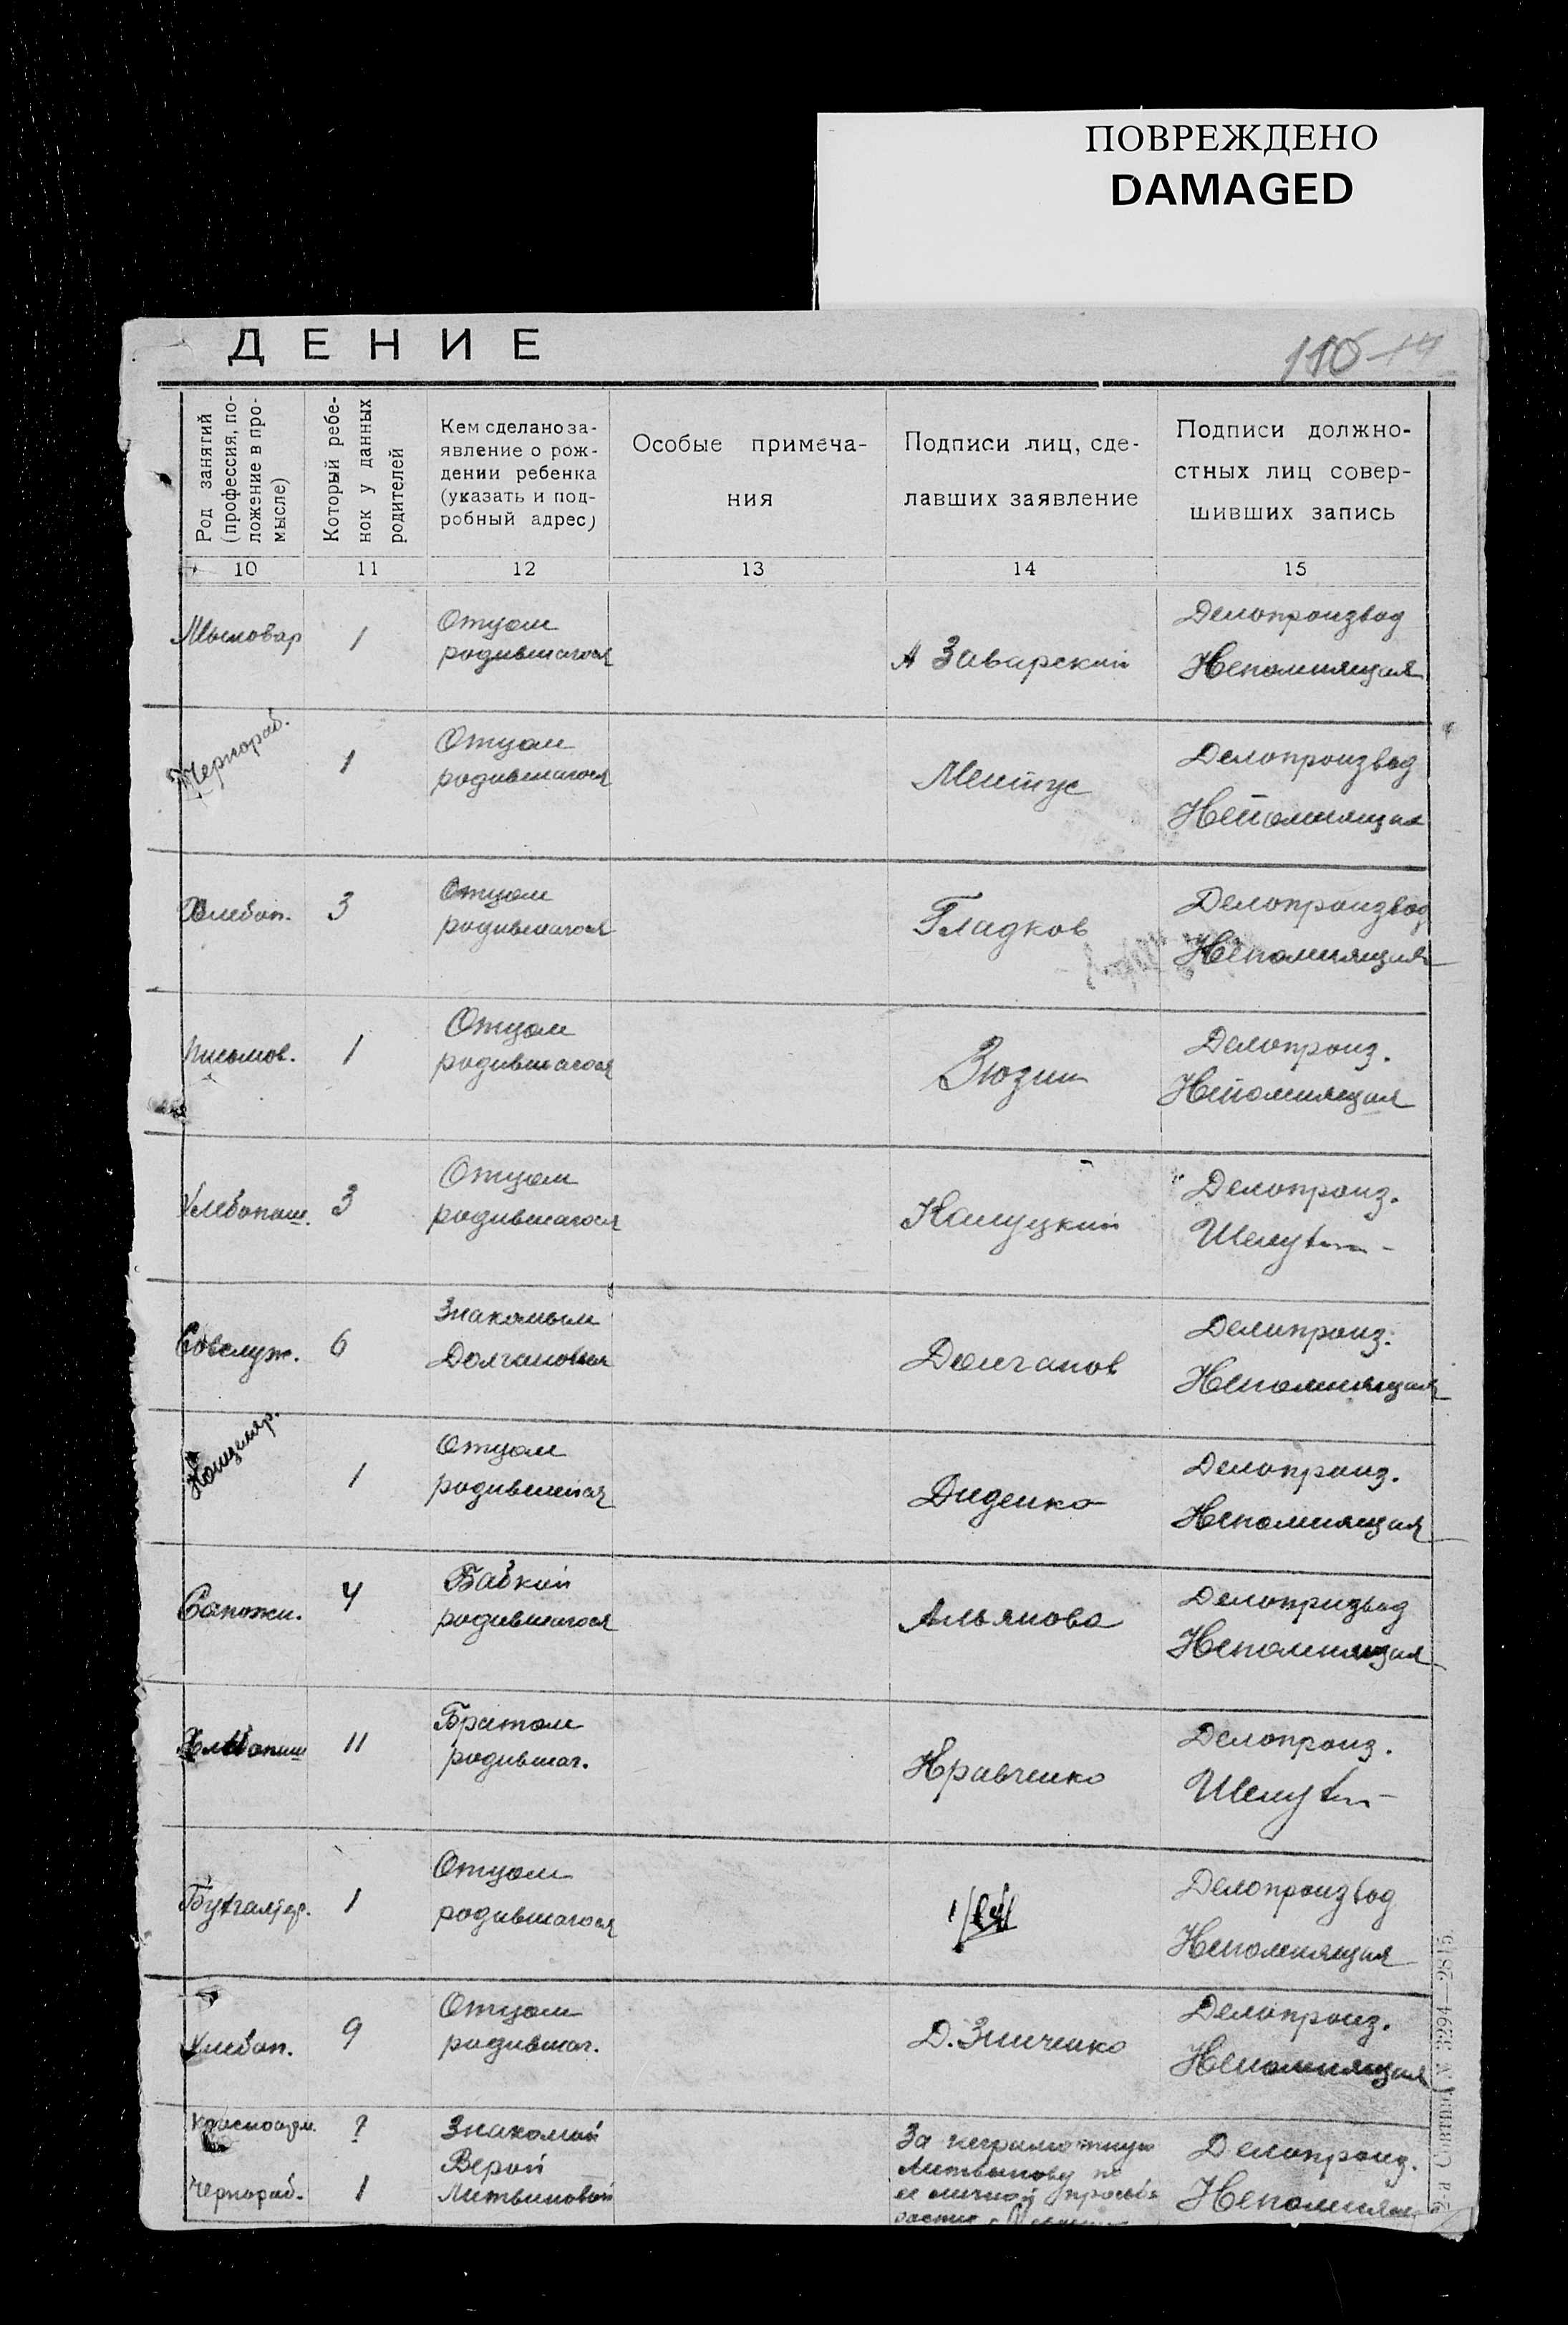 ПОВРЕЖДЕНО
DAMAGED
ДЕНИЕ
110
Род занятий
(профессия, по-
ложение в про-
мысле)
Который ребе-
нок у данных
родителей
Кем сделано за-
явление о рож-
дении ребенка
(указать и под-
робный адрес)
Особые примеча-
ния
Подписи лиц, сде-
лавших заявление
Подписи должно-
стных лиц совер-
шивших запись
10 11 12 13 14 15
Мыловар 1 Отцом
родившагося
А Заварский
Делопроизвод
Непомнящая
Чернораб. 1 Отцом
родившагося
Делопроизвод
Непомнящая
Хлебоп. 3 Отцом
родившагося
Гладков
Делопроизвод
Непомнящая
Письмов. 1 Отцом
родившагося
Зюзин
Делопроиз.
Непомнящая
Хлебопаш. 3 Отцом
родившагося
Делопроиз.
Совслуж. 6 Знакомым
Долганов
Делопроиз.
Непомнящая
Канцеляр. 1 Отцом
Диденко
Делопроиз.
Непомнящая
Сапожн. 4 Бабкий
родившагося
Альянова
Непомнящая
Хлебопаш 11 Братом
родившаг.
Кравченко
Делопроиз.
Бухгалтер. 1 Отцом
родившагося
Делопроизвод
Непомнящая
Хлебоп. 9 Отцом
родившаг.
Д. Зинченко
Делопроиз.
Непомнящая
Красноарм. ? Знакомой
Верой
Чернораб. 1 Литвиновой
За неграмотную
Литвинову по
ее личной просьбе
Делопроиз.
3294—2815.